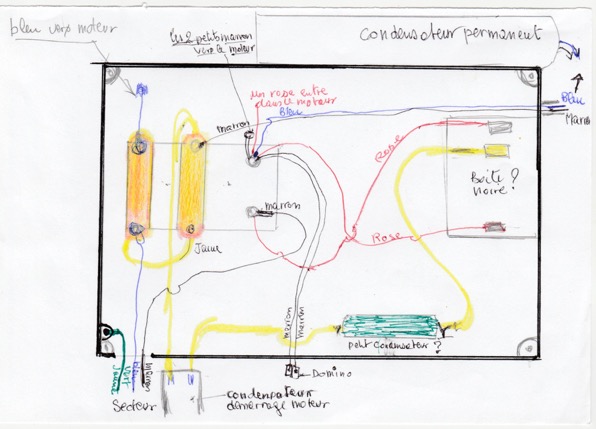 bleu vers moteur
les 2 petits marron
vers le moteur
condensateur permanent
un rose entre
dans le moteur
Bleu
Bleu
Marron
marron
Rose
Boite ?
noire ?
marron
Jaune
Rose
marron
marron
petit condensateur ?
Domino
Vert
Jaune
bleu
marron
Secteur
condensateur
démarrage moteur